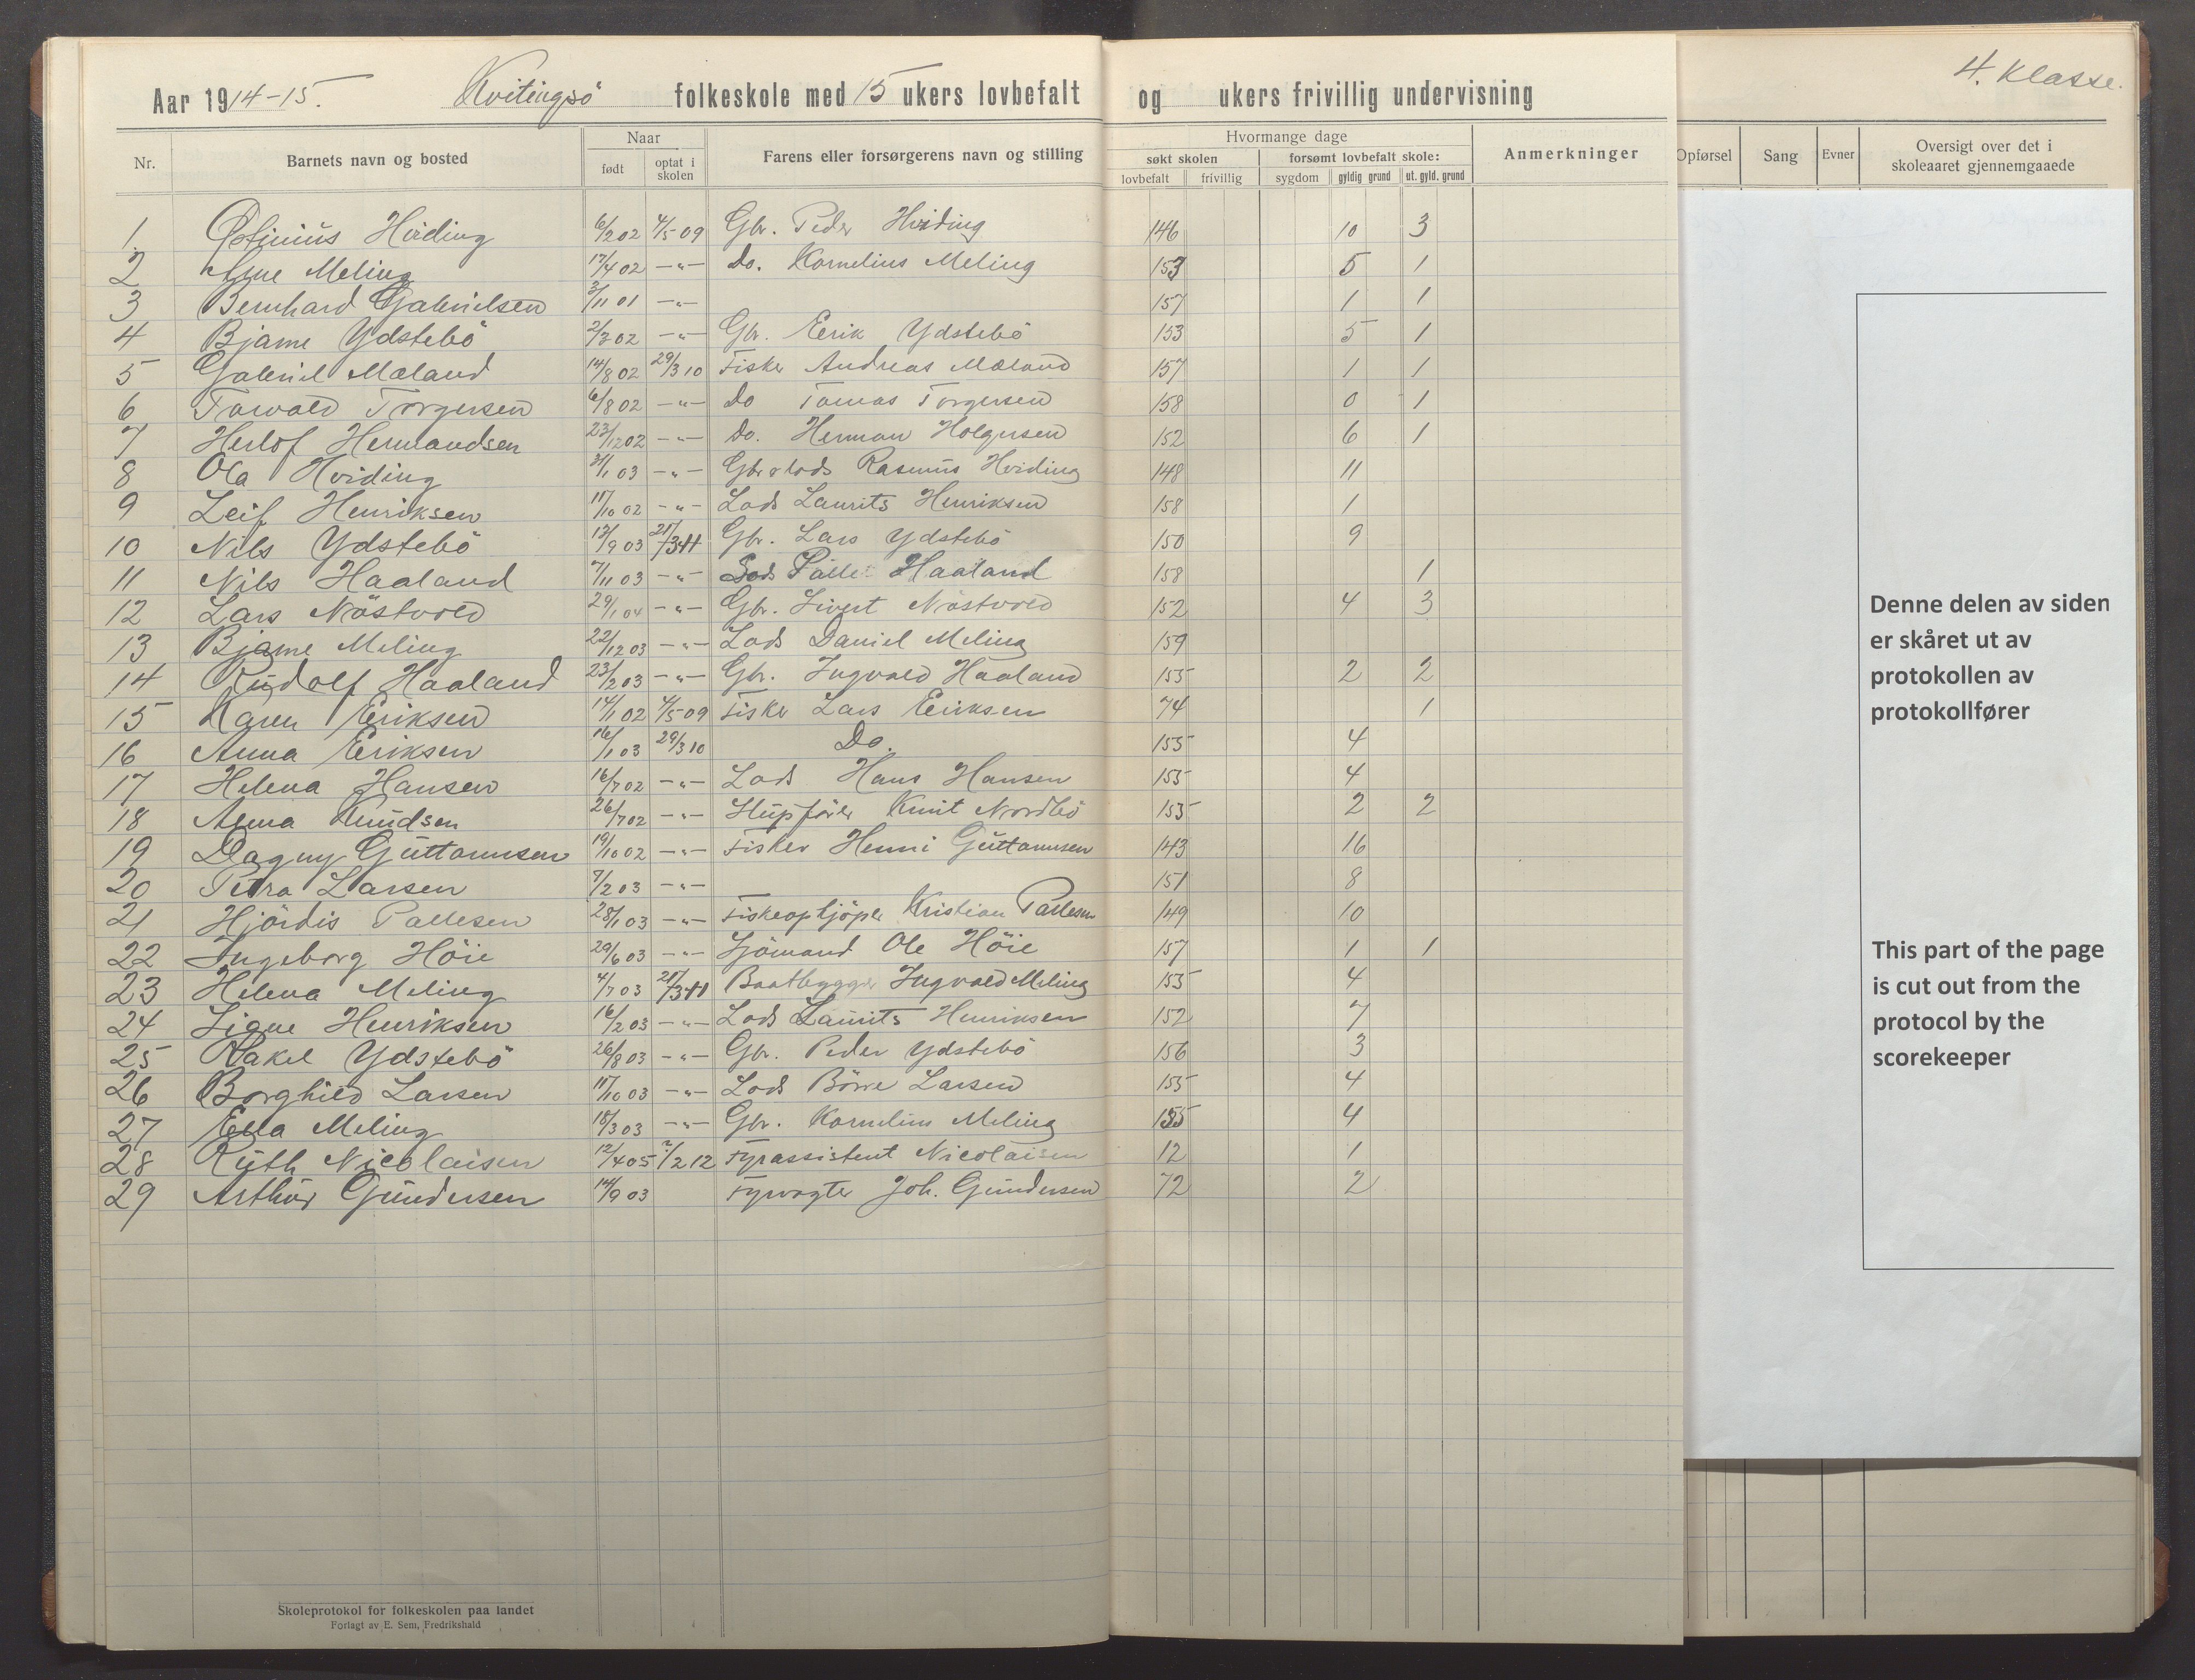 Aar 1914-15. Kvitingsö folkeskole med 15 ukers lovbefalt og ukers frivillig undervisning
4. Klasse.
Nr. Barnets navn og bosted Naar født optat i skolen Farens eller forsørgerens navn og stilling Hvormange dage søkt skolen lovbefalt frivillig forsømt lovbefalt skole: sygdom gyldig grund ut. gyld. grund Anmerkninger Opførsel Sang Evner Oversigt over det i skoleaaret gjennemgaaede
1. Hviding 6/2 02 4/5 09 Gbr. Peder Hviding 146 10 3
2 Arne Meling 17/4 02 -"- Do. Kornelius Meling 153 5 1
3 Bernhard Gabrielsen 3/11 01 -"- 157 1 1
4 Bjarne Ydstebö 2/3 02 -"- Gbr. Eerik Ydstebö 153 5 1
5 Gabriel Mæland 14/8 02 29/3 10 Fisker Andreas Mæland 157 1 1
6 Torvald Torgersen 6/8 02 -"- Do Tomas Torgersen 158 0 1
7 Herlof Hermandsen 23/12 02 -"- Do. Herman Holgersen 152 6 1
8 Ola Hviding 31/1 03 -"- Gbr & lods Rasmus Hviding 148 11
9 Leif Henriksen 17/10 02 -"- Lods Laurits Henriksen 158 1
10 Nils Ydstebö 13/9 03 21/3 11 Gbr. Lars Ydstebö 150 9
11 Nils Haaland 7/11 03 -"- Lods Palle Haaland 158 1
12 Lars Nöstvold 29/1 04 -"- Gbr. Sivert Nöstvold 152 4 3
13 Bjarne Meling 22/12 03 -"- Lods Daniel Meling 159
14 Rudolf Haaland 23/2 03 -"- Gbr. Ingvald Haaland 155 2 2
15 Karen Eriksen 14/1 02 4/5 09 Fisker Lars Eeriksen 74 1
16 Anna Eriksen 16/1 03 29/3 10 Do. 155 4
17 Helena Hansen 16/7 02 -"- Lods Hans Hansen 155 4
18 Anna Knudsen 26/7 02 -"- Knut Nordbö 155 2 2
19 Dagny Guttormsen 19/10 02 -"- Fisker Henni Guttormsen 143 16
20 Petra Larsen 7/2 03 -"- 151 8
21 Hjördis Pallesen 28/1 03 -"- Fiskeopkjöper Kristian Pallesen 149 10
22 Ingeborg Höie 29/6 03 -"- Sjömand Ole Höie 157 1 1
23 Helena Meling 4/7 03 21/3 11 Baatbygger Ingvald Meling 155 4
24 Signe Henriksen 16/2 03 -"- Lods Laurits Henriksen 152 7
25 Rakel Ydstebö 26/8 03 -"- Gbr. Peder Ydstebö 156 3
26 Borghild Larsen 17/10 03 -"- Lods Börre Larsen 155 4
27 Ella Meling 18/3 03 -"- Gbr. Kornelius Meling 155 4
28 Ruth Nicolaisen 12/4 05 2/2 12 Fyrassistent Nicolaisen 12 1
29 Arthur Gundersen 14/9 03 Fyrvogter Joh. Gundersen 72 2
Denne delen av siden
er skåret ut av
protokollen av
protokollfører
This part of the page
is cut out from the
protocol by the
scorekeeper
Skoleprotokol for folkeskolen paa landet
Forlagt av E. Sem, Fredrikshald